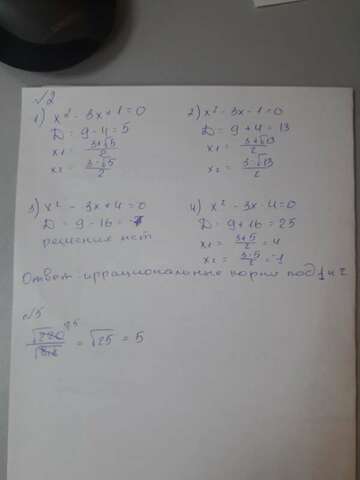 √2
1) x² - 3x + 1 = 0
D = 9 - 4 = 5
x1 = (3+√5)/2
x2 = (3-√5)/2
2) x² - 3x - 1 = 0
D = 9 + 4 = 13
x1 = (3+√13)/2
x2 = (3-√13)/2
3) x² - 3x + 4 = 0
D = 9 - 16 = -7
решения нет
4) x² - 3x - 4 = 0
D = 9 + 16 = 25
x1 = (3+5)/2 = 4
x2 = (3-5)/2 = -1
Ответ - иррациональные корни под 1 и 2
√5
= √25 = 5